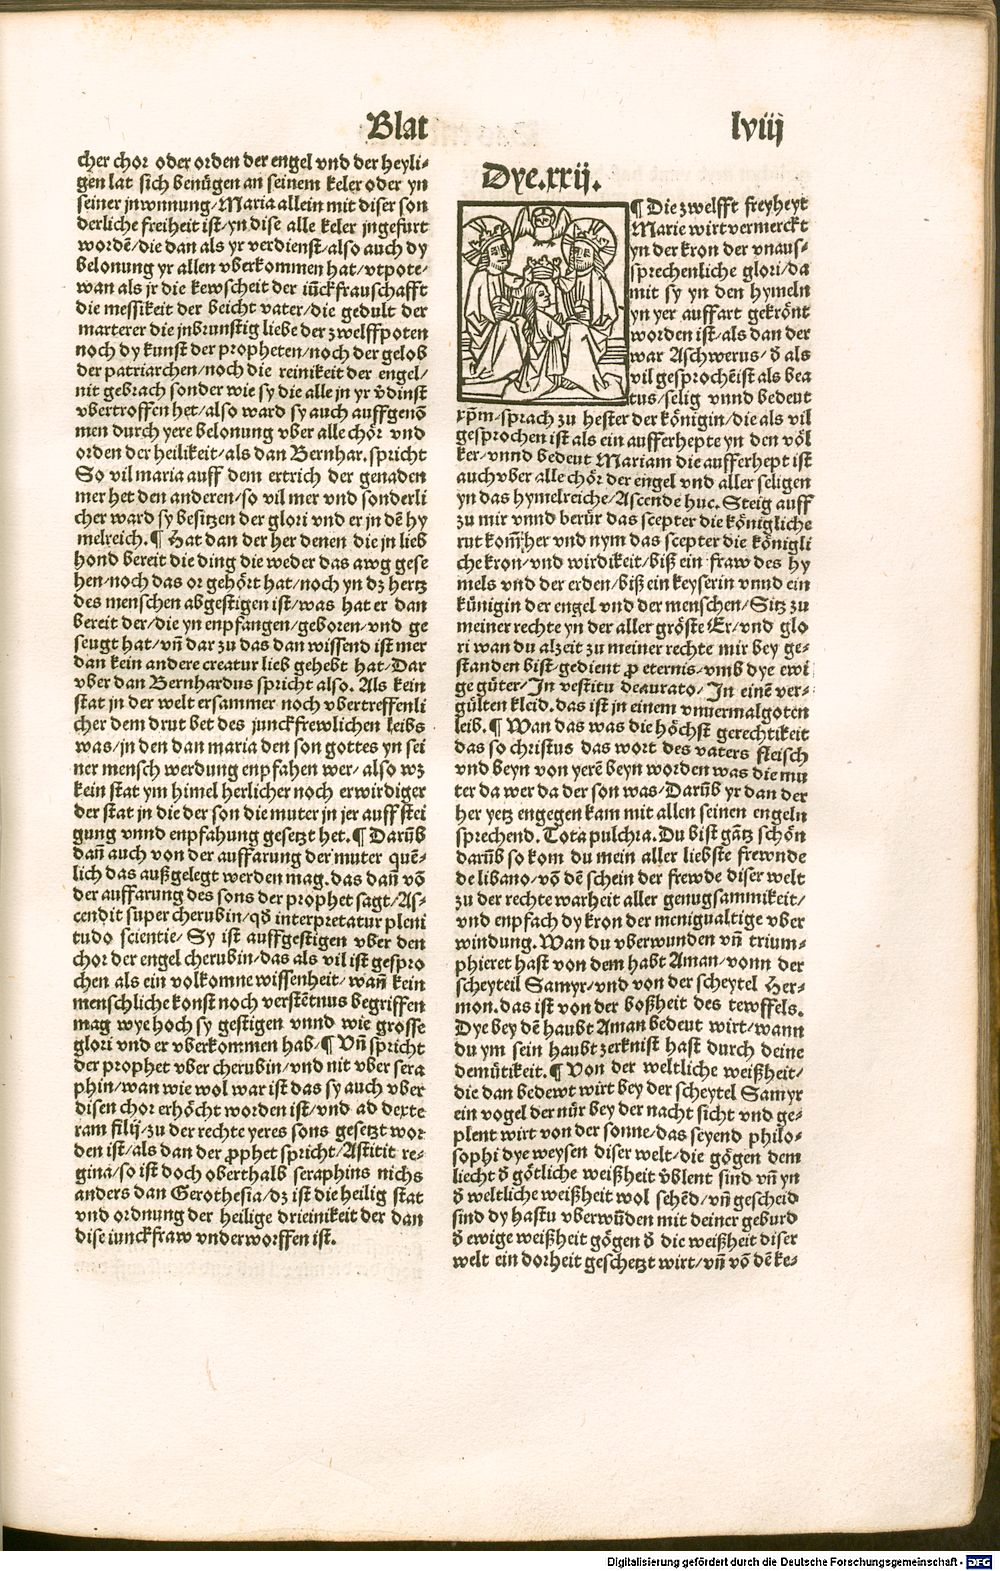 Blat lviij
cher chor oder orden der engel vnd der heyli-
gen lat sich benügen an seinem keler oder yn
seiner jnwnnung/Maria allein mit diser son
derliche freiheit ist/yn dise alle keler jngefurt
wordē/die dan als yr verdienst/also auch dy
belonung yr allen vberkommen hat/vtpote/
wan als jr die kewscheit der iūckfrauschafft
die messikeit der beicht vater/die gedult der
marterer die jnbrunstig liebe der zwelffpoten
noch dy kunst der propheten/noch der gelob
der patriarchen/noch die reinikeit der engel/
nit gebrach sonder wie sy die alle jn yr v̄dinst
vbertroffen het/also ward sy auch auffgenō
men durch yere belonung vber alle chör vnd
orden der heilikeit/als dan Bernhar. spricht
So vil maria auff dem ertrich der genaden
mer het den anderen/so vil mer vnd sonderli
cher ward sy besitzen der glori vnd er jn dē hy
melreich.¶ Hat dan der her denen die jn lieb
hond bereit die ding die weder das awg gese
hen/noch das or gehört hat/noch yn dz hertz
des menschen abgestigen ist/was hat er dan
bereit der/die yn enpfangen/geboren/vnd ge
seugt hat/vn̄ dar zu das dan wissend ist mer
dan kein andere creatur lieb gehebt hat/Dar
vber dan Bernhardus spricht also. Als kein
stat jn der welt ersammer noch vbertreffenli
cher dem drut bet des junckfrewlichen leibs
was/jn den dan maria den son gottes yn sei
ner mensch werdung enpfahen wer/also wz
kein stat ym himel herlicher noch erwirdiger
der stat jn die der son die muter jn jer auff stei
gung vnnd enpfahung gesetzt het.¶ Darūb
dan̄ auch von der auffarung der muter quē-
lich das außgelegt werden mag. das dan̄ vō
der auffarung des sons der prophet sagt/As-
cendit super cherubin/qd̄ interpretatur pleni
tudo scientie/ Sy ist auffgestigen vber den
chor der engel cherubin/das als vil ist gespro
chen als ein volkomne wissenheit/wan̄ kein
menschliche konst noch verstētnus begriffen
mag wye hoch sy gestigen vnnd wie grosse
glori vnd er vberkommen hab/¶ Vn̄ spricht
der prophet vber cherubin/vnd nit vber sera
phin/wan wie wol war ist das sy auch vber
disen chor erhöcht worden ist/vnd ad dexte
ram filij/zu der rechte yeres sons gesetzt wor
den ist/als dan der ꝓphet spricht/Astitit re-
gina/so ist doch oberthalb seraphins nichs
anders dan Gerothesia/dz ist die heilig stat
vnd ordnung der heilige drieinikeit der dan
dise iunckfraw vnderworffen ist.
Dye.xxij.
¶ Die zwelfft freyheyt
Marie wirt vermerckt
yn der kron der vnaus-
sprechenliche glori/da
mit sy yn den hymeln
yn yer auffart gekrönt
worden ist/als dan der
war Aschwerus/ð als
vil gesprochēist als bea
tus/selig vnnd bedeut
xp̄m/sprach zu hester der königin/die als vil
gesprochen ist als ein aufferhepte yn den völ
ker/vnnd bedeut Mariam die aufferhept ist
auch vber alle chör der engel vnd aller seligen
yn das hymelreiche/Ascende huc. Steig auff
zu mir vnnd berür das scepter die königliche
rut kom̄/her vnd nym das scepter die königli
che kron/vnd wirdikeit/biß ein fraw des hy
mels vnd der erden/biß ein keyserin vnnd ein
künigin der engel vnd der menschen/Sitz zu
meiner rechte yn der aller gröste Er/vnd glo
ri wan du alzeit zu meiner rechte mir bey ge-
standen bist/gedient ꝓ eternis/vmb dye ewi
ge güter/In vestitu deaurato/In einē ver-
gülten kleid. das ist jn einem vnuermalgoten
leib.¶ Wan das was die höchst gerechtikeit
das so christus das wort des vaters fleisch
vnd beyn von yerē beyn worden was die mu
ter da wer da der son was/Darūb yr dan der
her yetz engegen kam mit allen seinen engeln
sprechend. Tota pulchra. Du bist gātz schön
darūb so kom du mein aller liebste frewnde
de libano/vō dē schein der frewde diser welt
zu der rechte warheit aller genugsammikeit/
vnd enpfach dy kron der menigualtige vber
windung. Wan du vberwunden vn̄ trium-
phieret hast von dem habt Aman/vonn der
scheyteil Samyr/vnd von der scheytel Her-
mon. das ist von der boßheit des tewffels.
Dye bey dē haubt Aman bedeut wirt/wann
du ym sein haubt zerknist hast durch deine
demütikeit.¶ Von der weltliche weißheit/
die dan bedewt wirt bey der scheytel Samyr
ein vogel der nür bey der nacht sicht vnd ge-
plent wirt von der sonne/das seyend philo-
sophi dye weysen diser welt/die gögen dem
liecht ð götliche weißheit v̄blent sind vn̄ yn
ð weltliche weißheit wol sehēd/vn̄ gescheid
sind dy hastu vberwūden mit deiner geburd
ð ewige weißheit gögen ð die weißheit diser
welt ein dorheit geschetzt wirt/vn̄ vō dē ke-
Digitalisierung gefördert durch die Deutsche Forschungsgemeinschaft - DFG